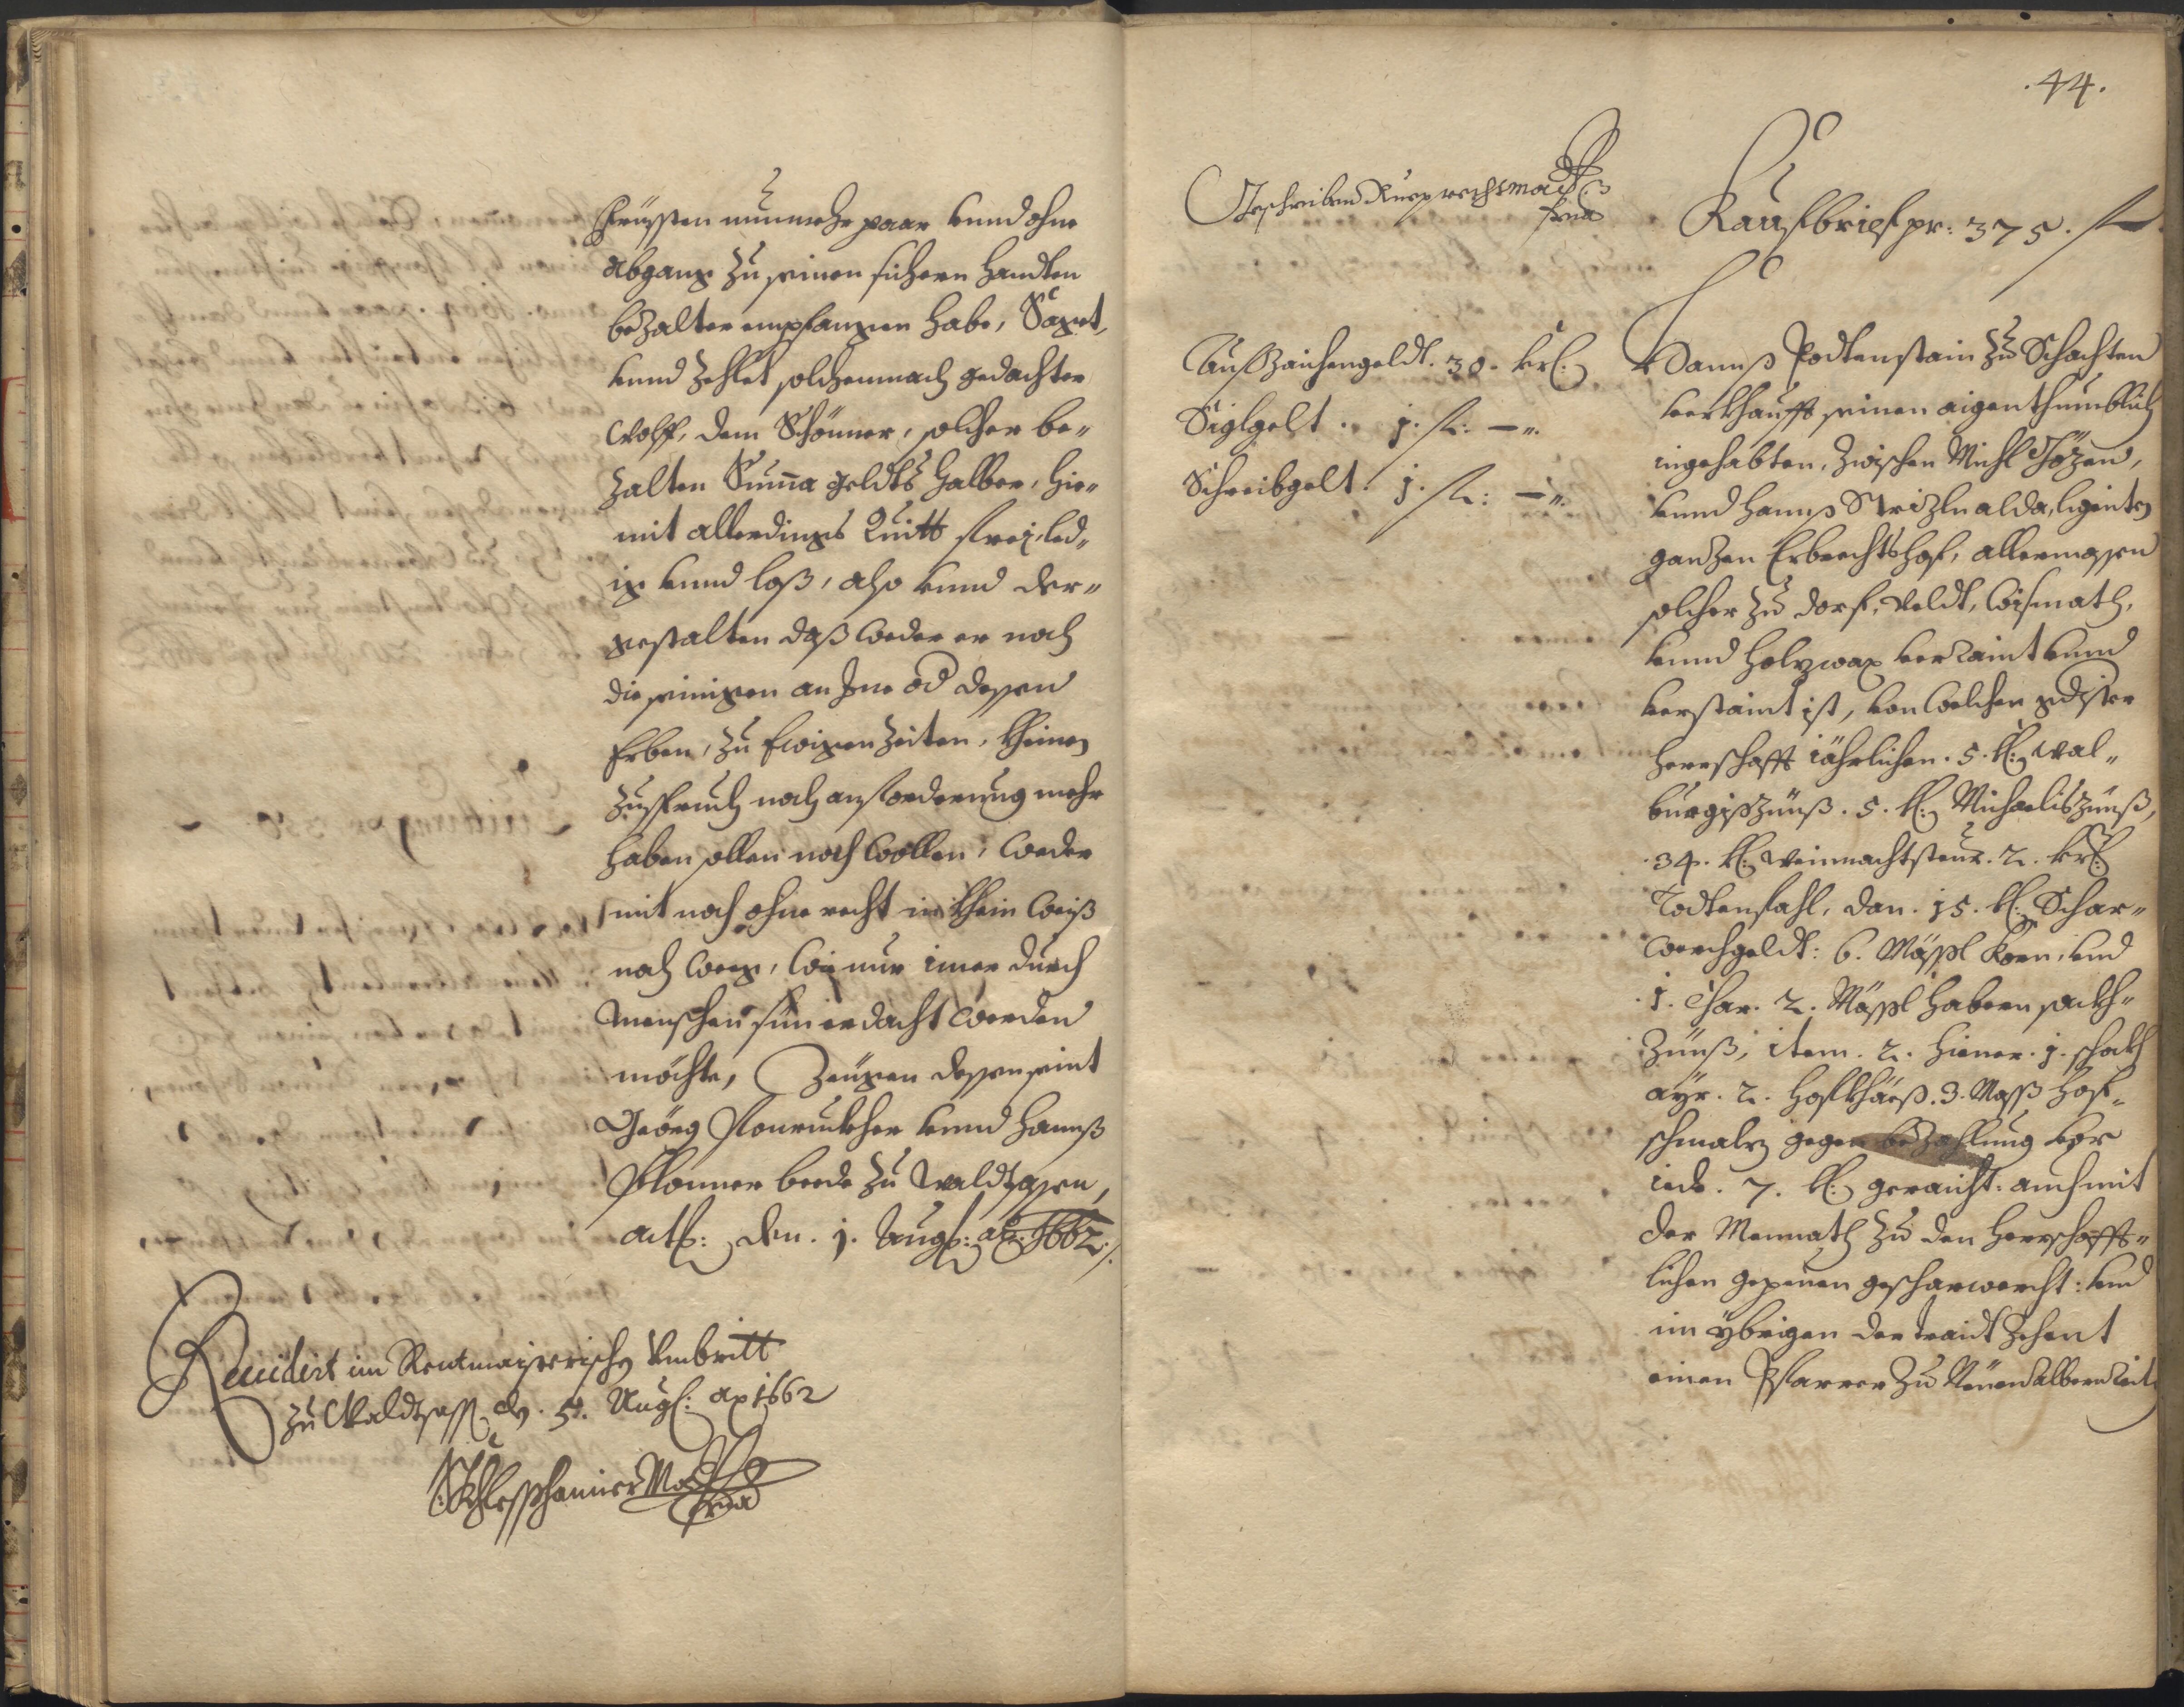 Fristen nunmehr paar vnnd ohne
abgang zu seinen sichern handten
bezalter empfangen habe, Sagt,
vnnd Zehlet solchemnach gedachter
Wolff, dem Schönner, solcher be„
zalten Suma geldts halber, hie„
mit allerdings Quitt frei, led„
ig vnnd loß, also vnnd der„
gestalten daß weder er noch
die seinigen an Jne od dessen
Erben, zu Ewigen Zeiten, kheinen
Zuspruch noch anforderung mehr
haben sollen noch wollen, weder
mit noch ohne recht in khein weiß
noch weeg, wie nur imer durch
Menschen sün erdacht werden
möchte, Zeugen dessen seint
Geörg vnnd Hannß
Plonner beede zu Waldtsassen,
act: den. 1. Aug: ao: 1662./.
Reuidirt im Rentmaisterischen Vmbritt
zu Waldtsass: den. 5. Aug: ao 1662
44.
Geschriben
Kaufbrief pr: 375. fl
Außzaichengeldt. 30. kr:
Siglgelt. 1. fl: —„.
Schreibgelt. 1. fl: —„.
Hannß Podtenstain zu Schachten
verkhaufft seinen aigenthumblich
ingehabten, zwischen Michl
vnnd Hannß alda, ligenten
ganzen Erbrechtshof, allermassen
solcher zu dorf, Veldt, Wismath,
vnnd holzwax verraint vnnd
verstaint ist, von welchen gdister
Herrschafft jährlichen. 5. kr: Wal„
burgißzünß. 5. kr: Michaeliszünß,
34. kr: Weinnachtsteur. 2. kr:
Todtenfahl, dan. 15. kr: Schar„
werchgeldt: 6. Mässl Korn, vnd
1. Khar. 2. Mässl habern
Zünß, item. 2. hiener. 1. schokh
ayr. 2. hofkhäeß. 3. Mass hof„
schmalz gegen bezahlung vor
iede. 7. kr: geraicht: auch mit
der Mennath zu den Herrschafft„
lichen gepeuen gescharwercht: vnd
im ybrigen der traidt Zehent
einen Pfarrer zu Neuenalbernreit